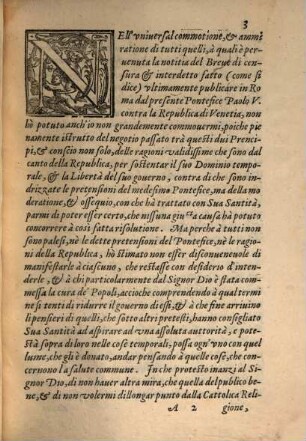 3
NEll'vniuersal commotione, & ammi
ratione di tutti quelli, à quali è per
uenuta la notitia del Breue di cen
sura & interdetto fatto (come si
dice) vltimamente publicare in Ro
ma dal presente Pontefice Paolo V.
contra la Republica di Venetia, non
hò potuto anch'io non grandemente commouermi, poiche pie
namente istrutto del negotio passato trà questi dui Prenci
pi, & conscio non solo, delle ragioni validissime che sono dal
canto della Republica, per sostentar il suo Dominio tempo
rale, & la Libertà del suo gouerno, contra di che sono in
drizzate le pretensioni del medesimo Pontefice, ma della mo
deratione, & ossequio, con che hà trattato con Sua Santità,
parmi di poter esser certo, che nissuna giusta causa hà potuto
concorrere à così fatta risolutione. Ma perche à tutti non
sono palesi, nè le dette pretensioni del Pontefice, nè le ragio
ni della Republica, hò stimato non esser disconueneuole di
manifestarle à ciascuno, che restasse con desiderio d'intende
derle, & à chi particolarmente dal Signor Dio è stata com
messa la cura de' Popoli, acciochè comprendendo à qual termi
ne si tenti di redurre il gouerno di essi, & à che fine arriuino
li pensieri di quelli, che sotto altri pretesti, hanno consigliato
Sua Santità ad aspirare ad vna assoluta auttorità, e pote
stà sopra di loro nelle cose temporali, possa ogn'vno con quel
lume, che gli è donato, andar pensando à quelle cose, che con
cernono la salute commune. In che protesto inanzi al Si
gnor Dio, di non hauer altra mira, che quella del publico be
ne, & di non volermi dillongar punto dalla Cattolica Reli-
A 2 gione,